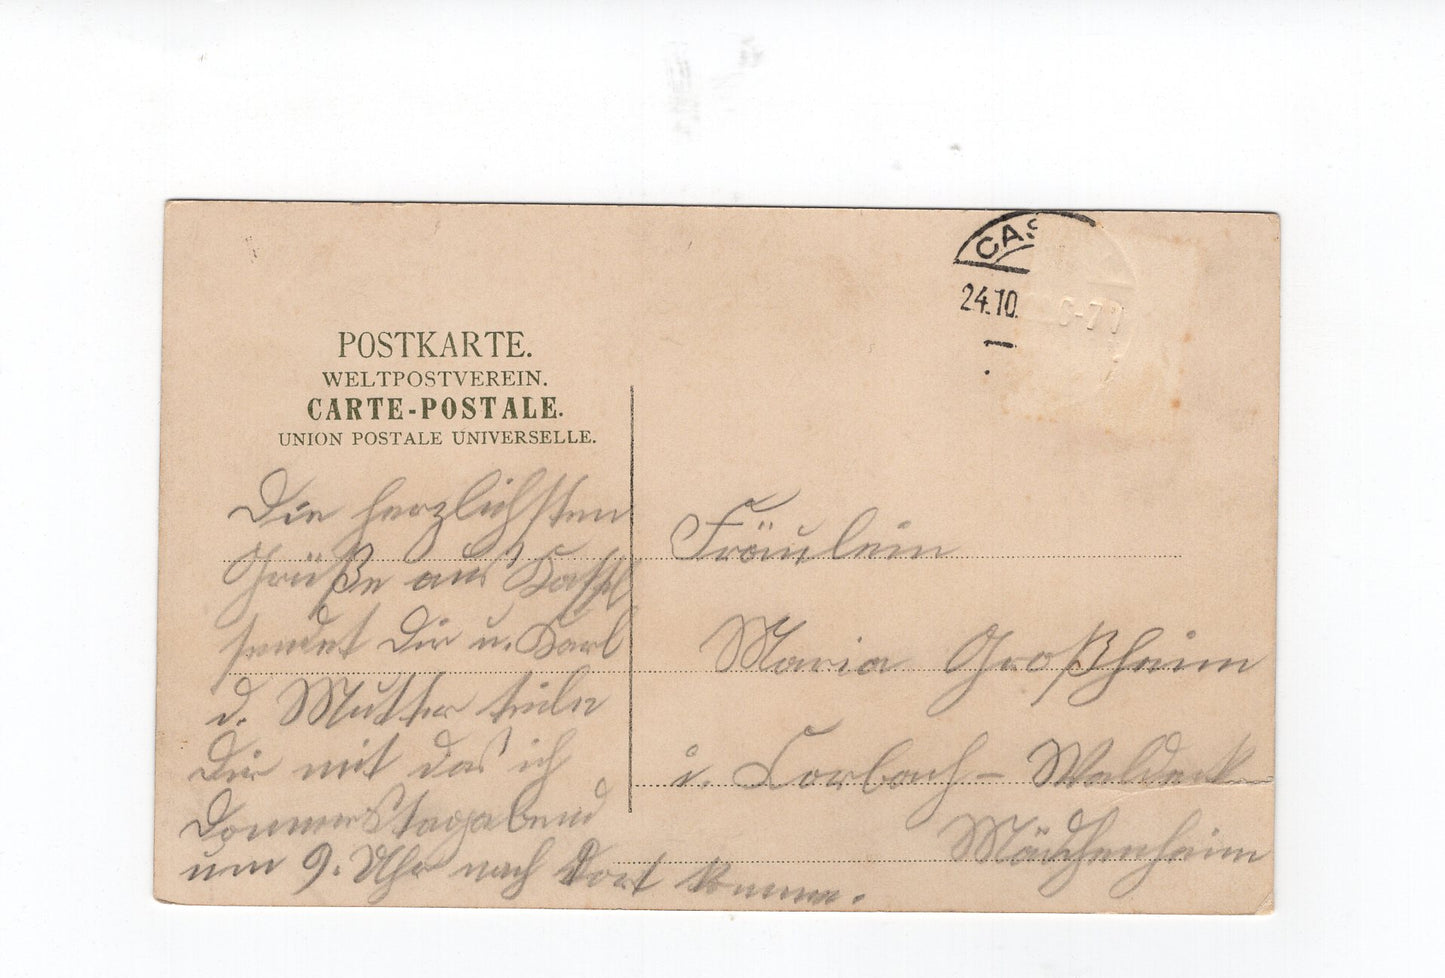 CAS
24.10.
6-7
POSTKARTE.
WELTPOSTVEREIN.
CARTE-POSTALE.
UNION POSTALE UNIVERSELLE.
Die herzlichsten
Grüße aus Kassel
sendet Dir u. Karl
d. Mutter teile
Dir mit das ich
Donnerstagabend
um 9. Uhr nach Dort komme.
Fräulein
Maria Großheim
i. Corbach - Waldeck
Mädchenheim